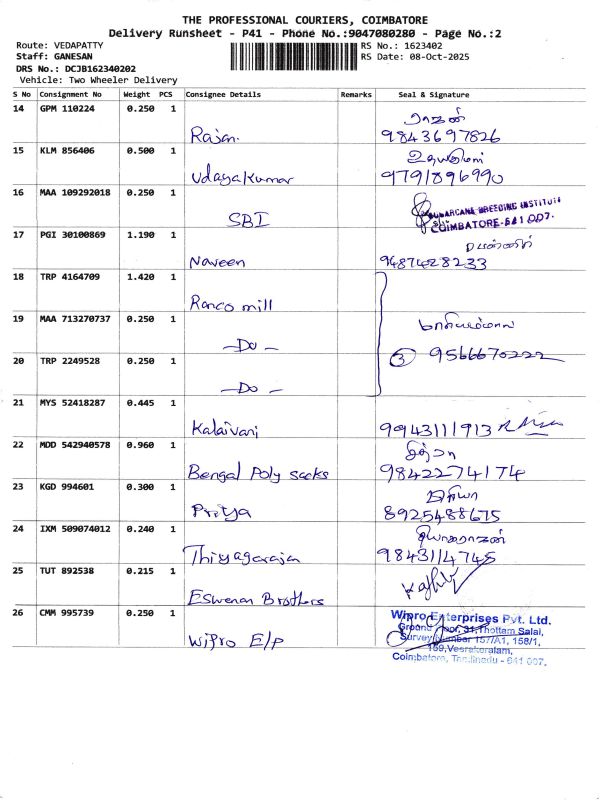 THE PROFESSIONAL COURIERS, COIMBATORE
Delivery Runsheet - P41 - Phone No.:9047080280 - Page No.:2
Route: VEDAPATTY
RS No.: 1623402
Staff: GANESAN
RS Date: 08-Oct-2025
DRS No.: DCJB162340202
Vehicle: Two Wheeler Delivery
S No Consignment No Weight PCS Consignee Details Remarks Seal & Signature
14 GPM 110224 0.250 1
ராஜன்
Rajan. 9843697826
15 KLM 856406 0.500 1
Udayakumar 9791896990
16 MAA 109292018 0.250 1
SUGARCANE BREEDING INSTITUTE
SBI COIMBATORE-641 007.
17 PGI 30100869 1.190 1
Naveen 9487428233
18 TRP 4164709 1.420 1
Ranco mill
19 MAA 713270737 0.250 1
-Do-
20 TRP 2249528 0.250 1
3 9566670222
-Do-
21 MYS 52418287 0.445 1
Kalaivani 9943111913
22 MDD 542940578 0.960 1
Bengal Poly sacks 9842274174
23 KGD 994601 0.300 1
பிரியா
Priya 8925488675
24 IXM 509074012 0.240 1
தியாகராஜன்
Thiyagarajan 9843114745
25 TUT 892538 0.215 1
Eswenan Brothers
26 CMM 995739 0.250 1
Wipro Enterprises Pvt. Ltd.
Ground Floor, 31,Thottam Salai,
Survey Number 157/A1, 158/1,
Wipro E/P 159,Veerakeralam,
Coimbatore, Tamilnadu - 641 007.